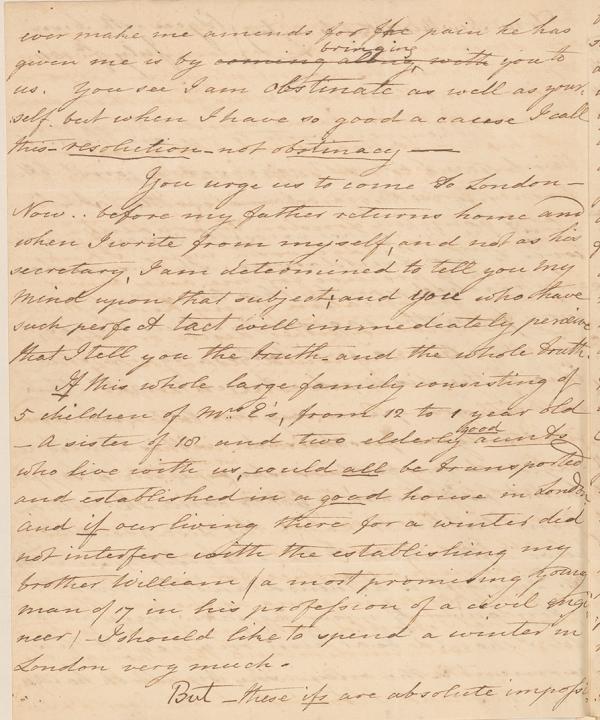 ever make me amends for the pain he has
bringing
given me is by coming along, with you to
us. You see I am obstinate as well as your
self. but when I have so good a cause I call
this – resolution – not obstinacy —
You urge us to come to London –
Now .. before my father returns home and
when I write from myself, and not as his
secretary, I am determined to tell you my
mind upon that subject; and you who have
such perfect tact will immediately perceive
that I tell you the truth – and the whole truth
If this whole large family consisting of
5 children of Mrs. E's, from 12 to 1 year old
good
– A sister of 18 and two elderly aunts
who live with us, could all be transported
and established in a good house in London
and if our living there for a winter did
not interfere with the establishing my
brother William (a most promising young
man of 17 in his profession of a civil engi
neer) – I should like to spend a winter in
London very much.
But – these ifs are absolute impossi